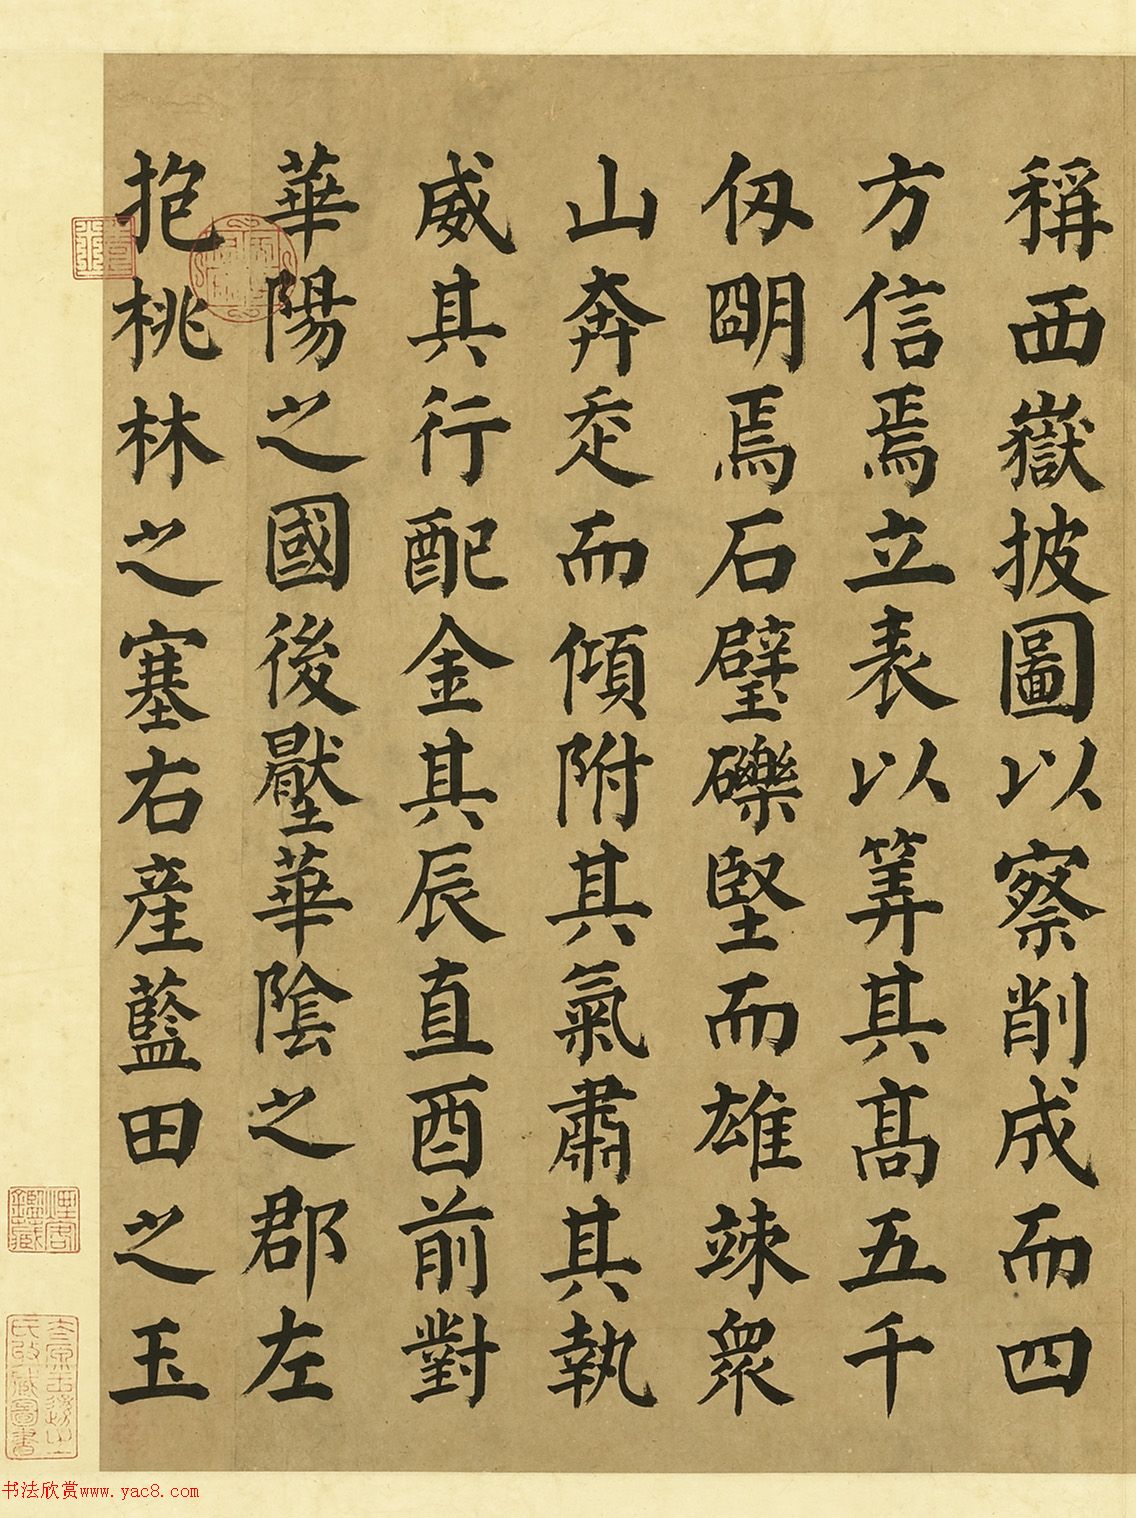 稱西嶽披圖以察削成而四
方信焉立表以筭其高五千
仞朙焉石壁礫堅而雄竦衆
山奔走而傾附其氣肅其執
威其行配金其辰直酉前對
華陽之國後壓華陰之郡左
抱桃林之塞右產藍田之玉
书法欣赏www.yac8.com